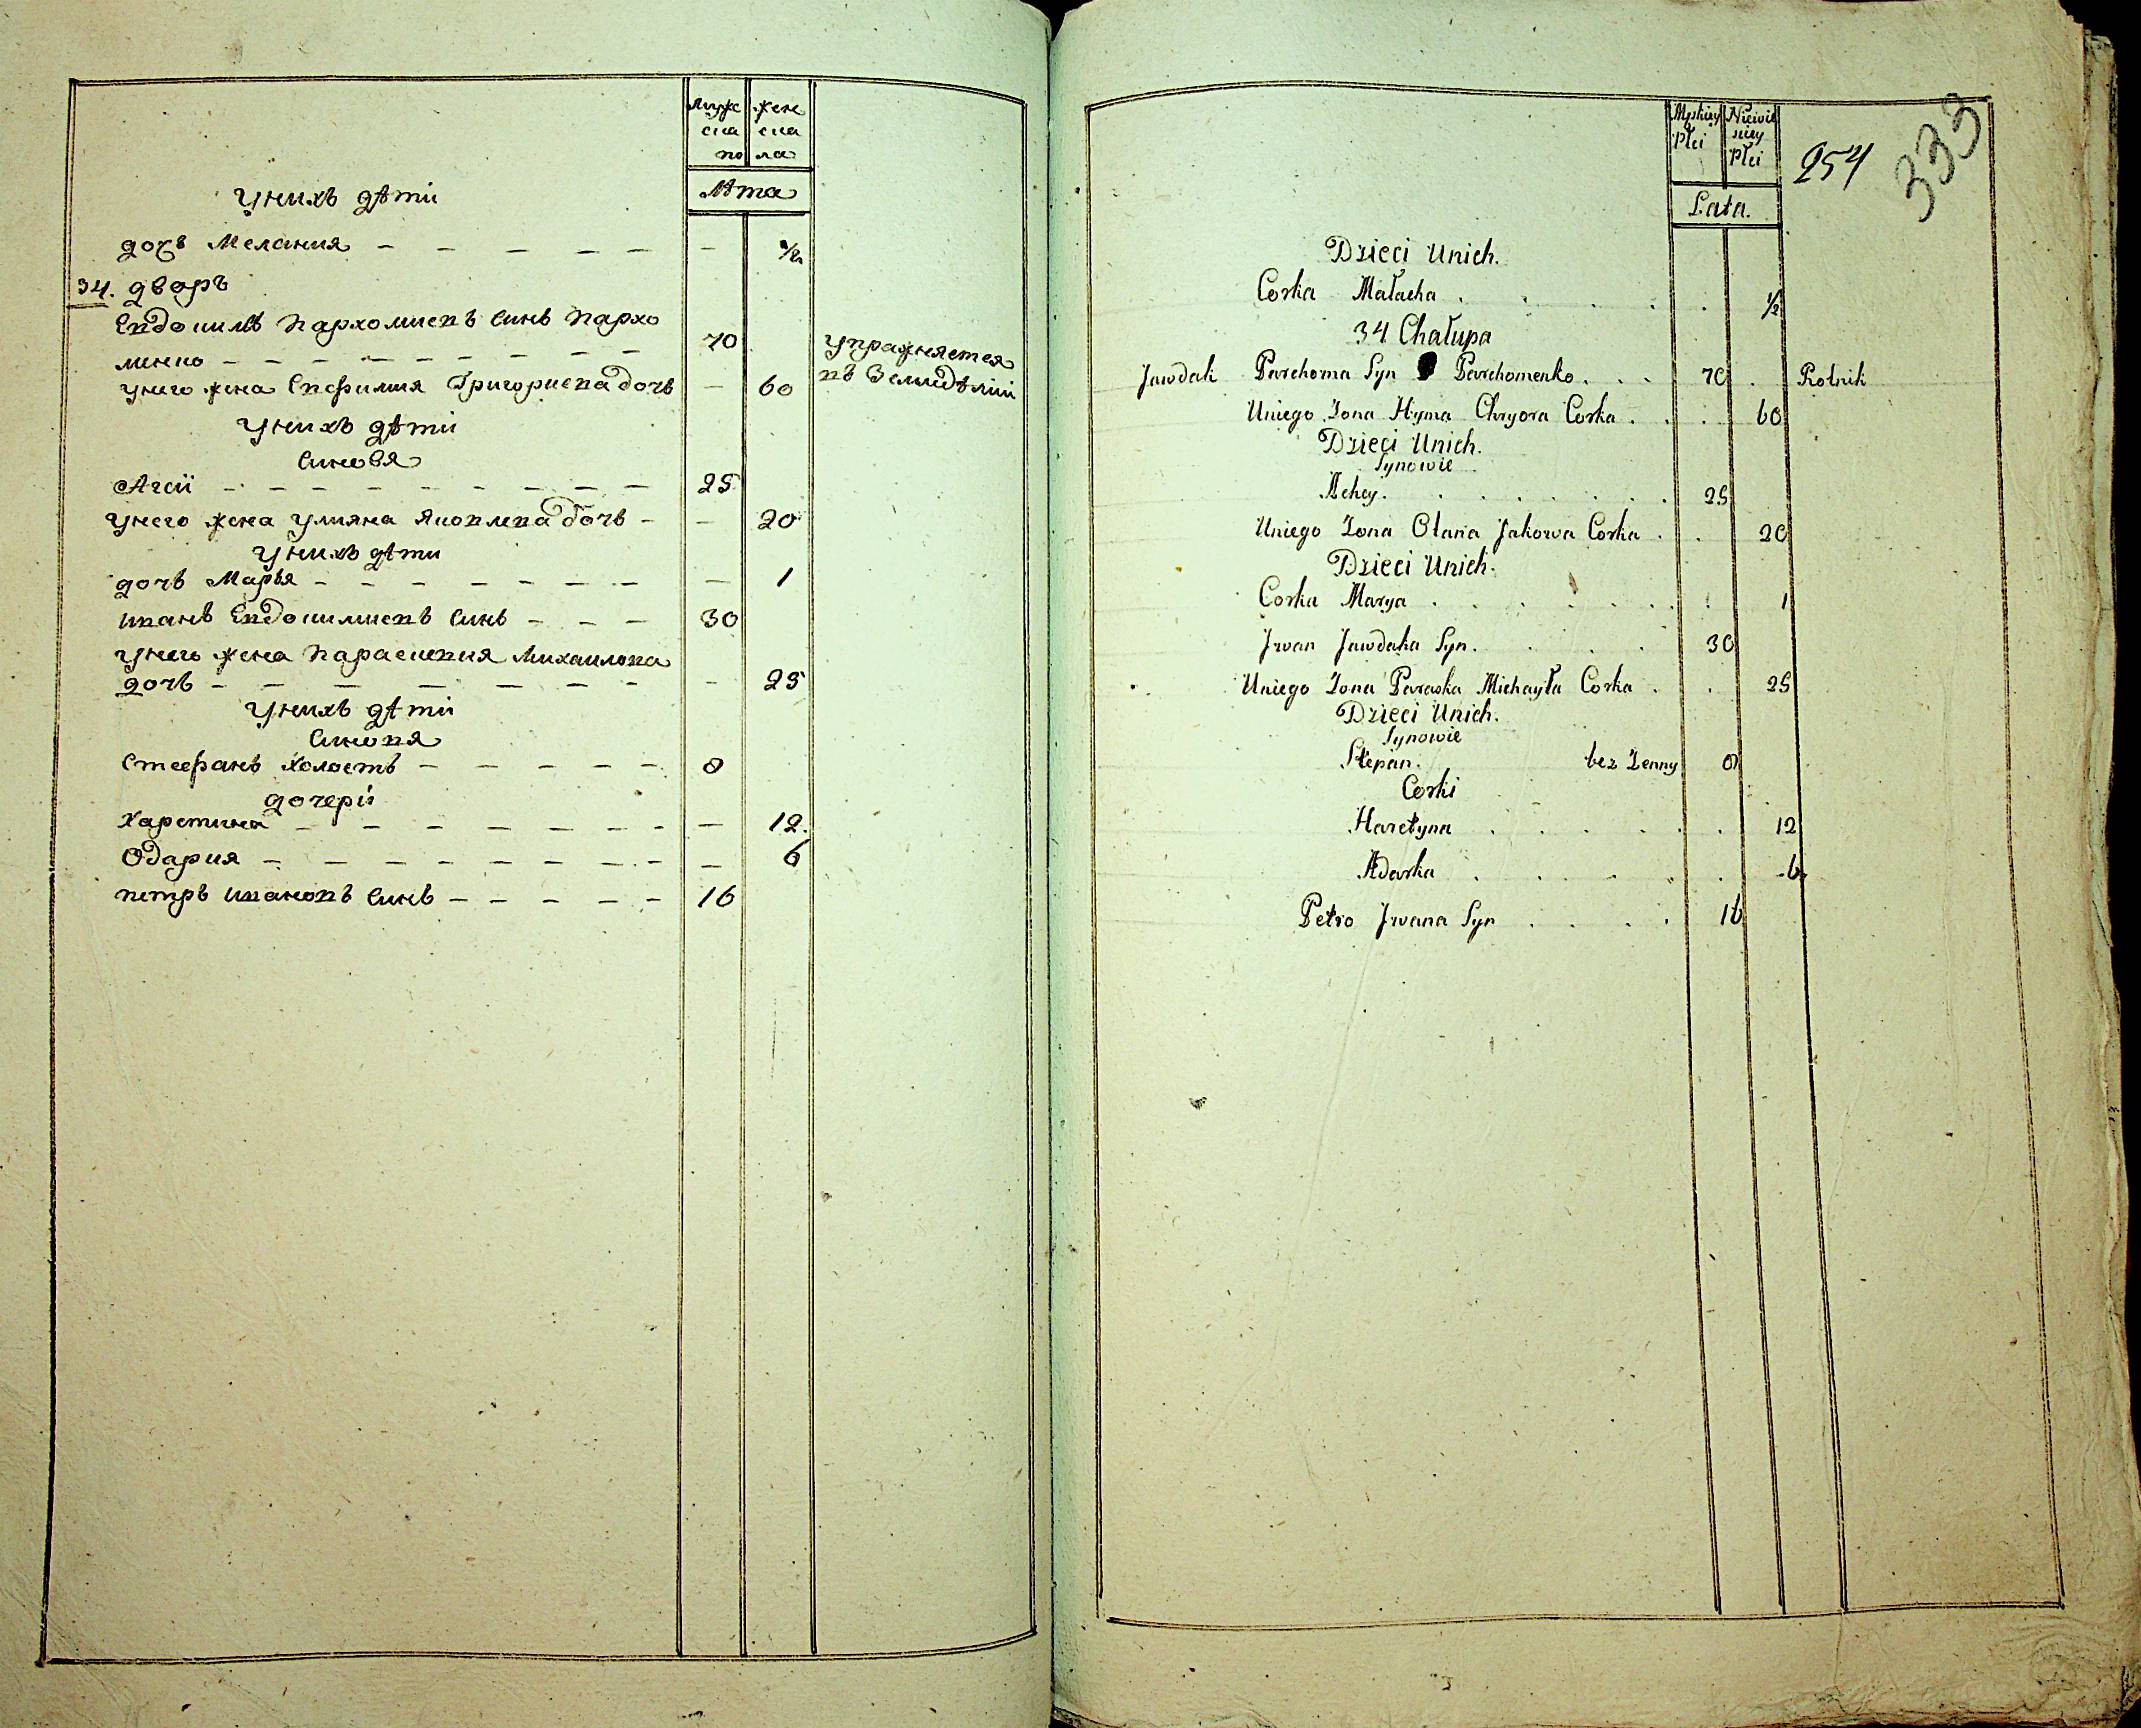 муже жен
ска ска
по ла
Лѣта
Унихъ дѣти
дочь Мелания — — — — — — ½
34. дворъ
Евдокимъ Пархомиевъ Синъ Пархо
менко — — — — — — — — 70
упражняется
въ Земледѣлии
унего жена Евфимия Григориева дочь — 60
Унихъ дѣти
Синовя
Агеи — — — — — — — — 25
унего жена Улияна Яковлева дочь — — 20
Унихъ дѣти
дочь Марья — — — — — — — — 1
Иванъ Евдокимиевъ Синъ — — — 30
унего жена Параскевия Михаилова
дочь — — — — — — — — 25
Унихъ дѣти
Синовя
Стефанъ Холостъ — — — — — 8
дочери
Харетина — — — — — — — — 12.
Одария — — — — — — — — — 6
петръ Ивановъ Синъ — — — — — 16
Męskiey Niewie
Płci sciey
Płci
254 333
Lata.
Dzieci Unich.
Corka Małacha . . . . . ½
34 Chałupa
Jawdak Parchoma Syn Parchomenko . . . 70 . Rolnik
Uniego Zona Hyma Chryora Corka . . . 60
Dzieci Unich.
Synowie
Ahey . . . . . . . . 25
Uniego Zona Olana Jakowa Corka . . 20
Dzieci Unich.
Corka Marya . . . . . . . . 1
Jwan Jawdaka Syn . . . . 30
Uniego Zona Paraska Michayła Corka . . 25
Dzieci Unich.
Synowie
Stepan. bez Zenny 8
Corki
Haretyna . . . . . . 12
Adarka . . . . . . 6
Petro Jwana Syn . . . . 16